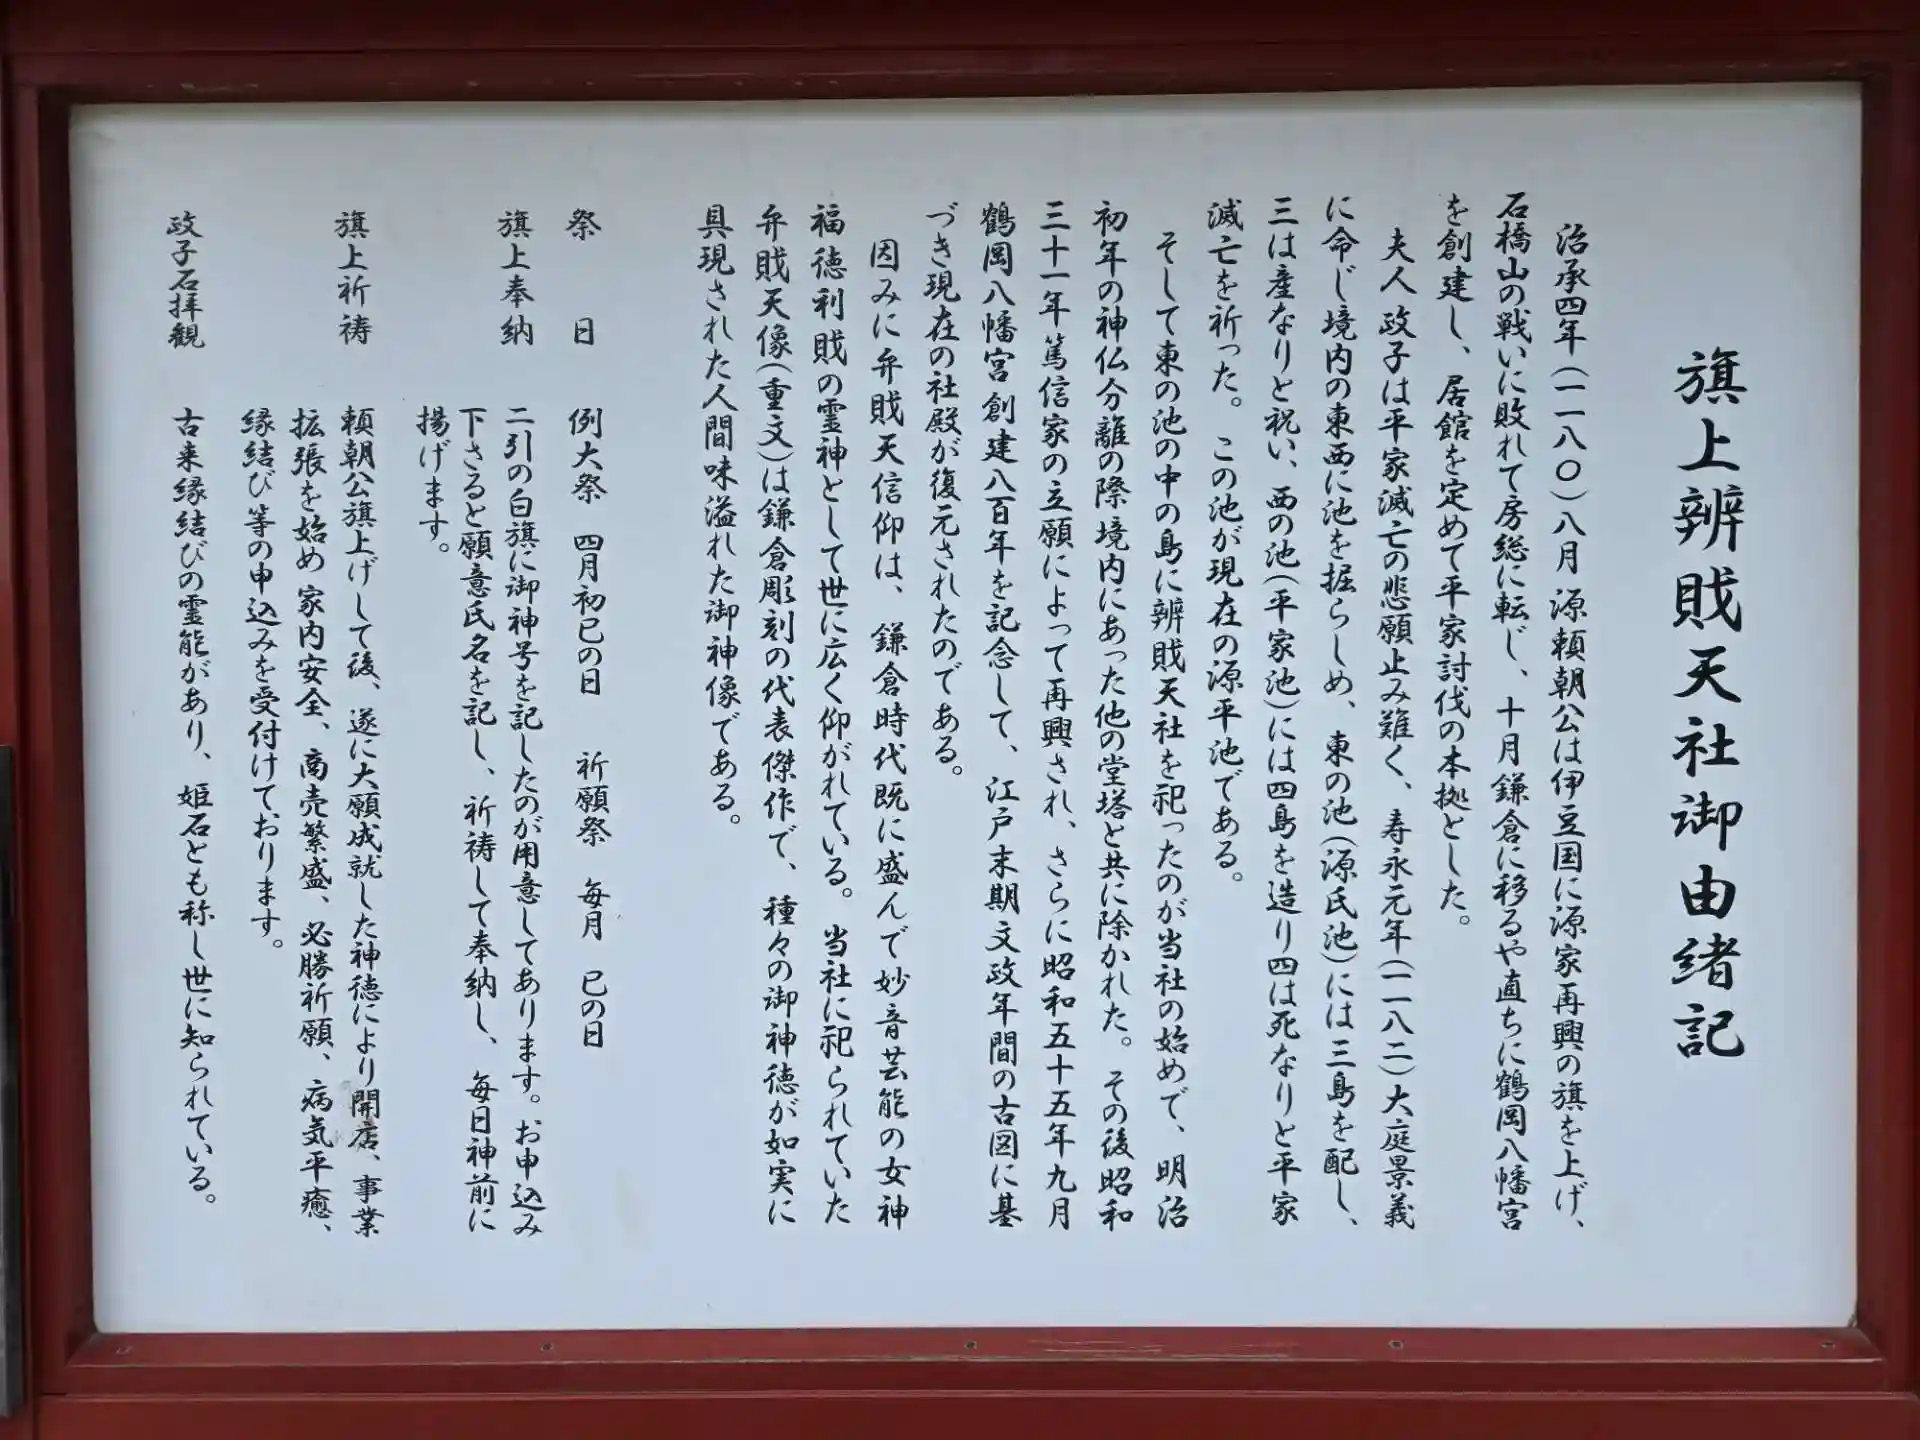 旗上辨戝天社御由緒記
治承四年(一一八〇)八月源頼朝公は伊豆国に源家再興の旗を上げ、
石橋山の戦いに敗れて房総に転じ、十月鎌倉に移るや直ちに鶴岡八幡宮
を創建し、居館を定めて平家討伐の本拠とした。
夫人政子は平家滅亡の悲願止み難く、寿永元年(一一八二)大庭景義
に命じ境内の東西に池を掘らしめ、東の池(源氏池)には三島を配し、
三は産なりと祝い、西の池(平家池)には四島を造り四は死なりと平家
滅亡を祈った。この池が現在の源平池である。
そして東の池の中の島に辨戝天社を祀ったのが当社の始めで、明治
初年の神仏分離の際境内にあった他の堂塔と共に除かれた。その後昭和
三十一年篤信家の立願によって再興され、さらに昭和五十五年九月
鶴岡八幡宮創建八百年を記念して、江戸末期文政年間の古図に基
づき現在の社殿が復元されたのである。
因みに弁戝天信仰は、鎌倉時代既に盛んで妙音芸能の女神
福徳利戝の霊神として世に広く仰がれている。当社に祀られていた
弁戝天像(重文)は鎌倉彫刻の代表傑作で、種々の御神徳が如実に
具現された人間味溢れた御神像である。
祭日 例大祭 四月初巳の日 祈願祭 毎月 巳の日
旗上奉納 二引の白旗に御神号を記したのが用意してあります。お申込み
下さると願意氏名を記し、祈祷して奉納し、毎日神前に
揚げます。
旗上祈祷 頼朝公旗上げして後、遂に大願成就した神徳により開店、事業
拡張を始め家内安全、商売繁盛、必勝祈願、病気平癒、
縁結び等の申込みを受付けております。
政子石拝観 古来縁結びの霊能があり、姫石とも称し世に知られている。